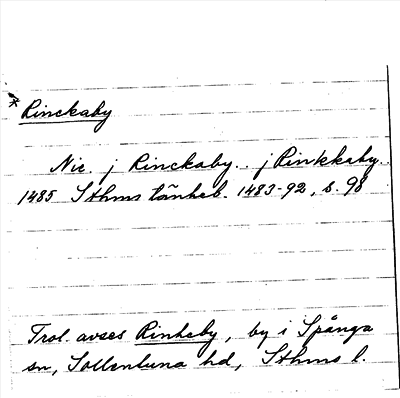 * Rinckaby
Nic. j Rinckaby.. j Rinkkaby..
1485 Sthms tänkeb. 1483-92, s. 98
Trol. avses Rinkeby, by i Spånga
sn, Sollentuna hd, Sthms l.